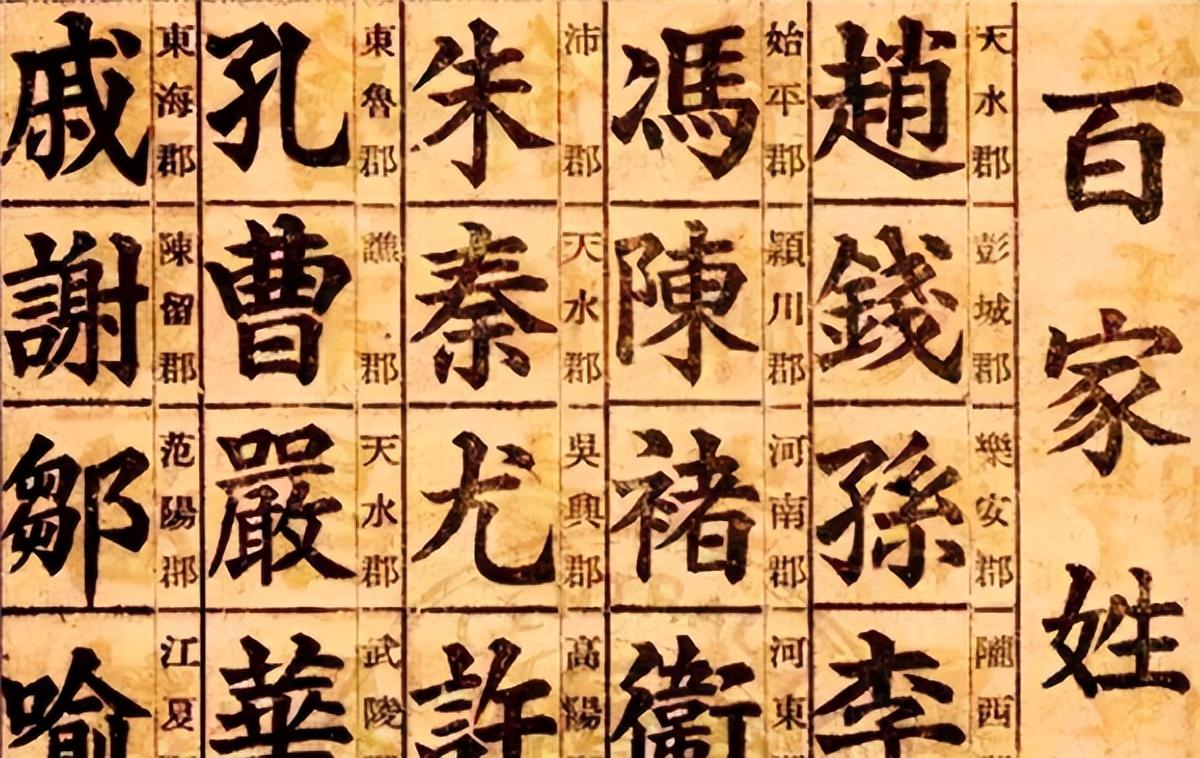 百家姓
天水郡 彭城郡 樂安郡 隴西
趙錢孫李
始平郡 頴川郡 河南郡 河東
馮陳褚衛
沛郡 天水郡 吳興郡 高陽
朱秦尤許
東魯郡 譙郡 天水郡 武陵
孔曹嚴華
東海郡 陳留郡 范陽郡 江夏
戚謝鄒喻